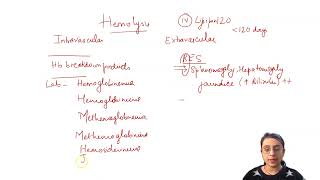 Hemolysis
Intravascular
Hb breakdown products
Lab - Hemoglobinemia
Hemoglobinuria
Methemoglobinemia
Methemoglobinuria
Hemosiderinuria
J
IV Lifespan 120
<120 days
Extravascular
RES
Splenomegaly, Hepatomegaly
jaundice (↑ Bilirubin) ++